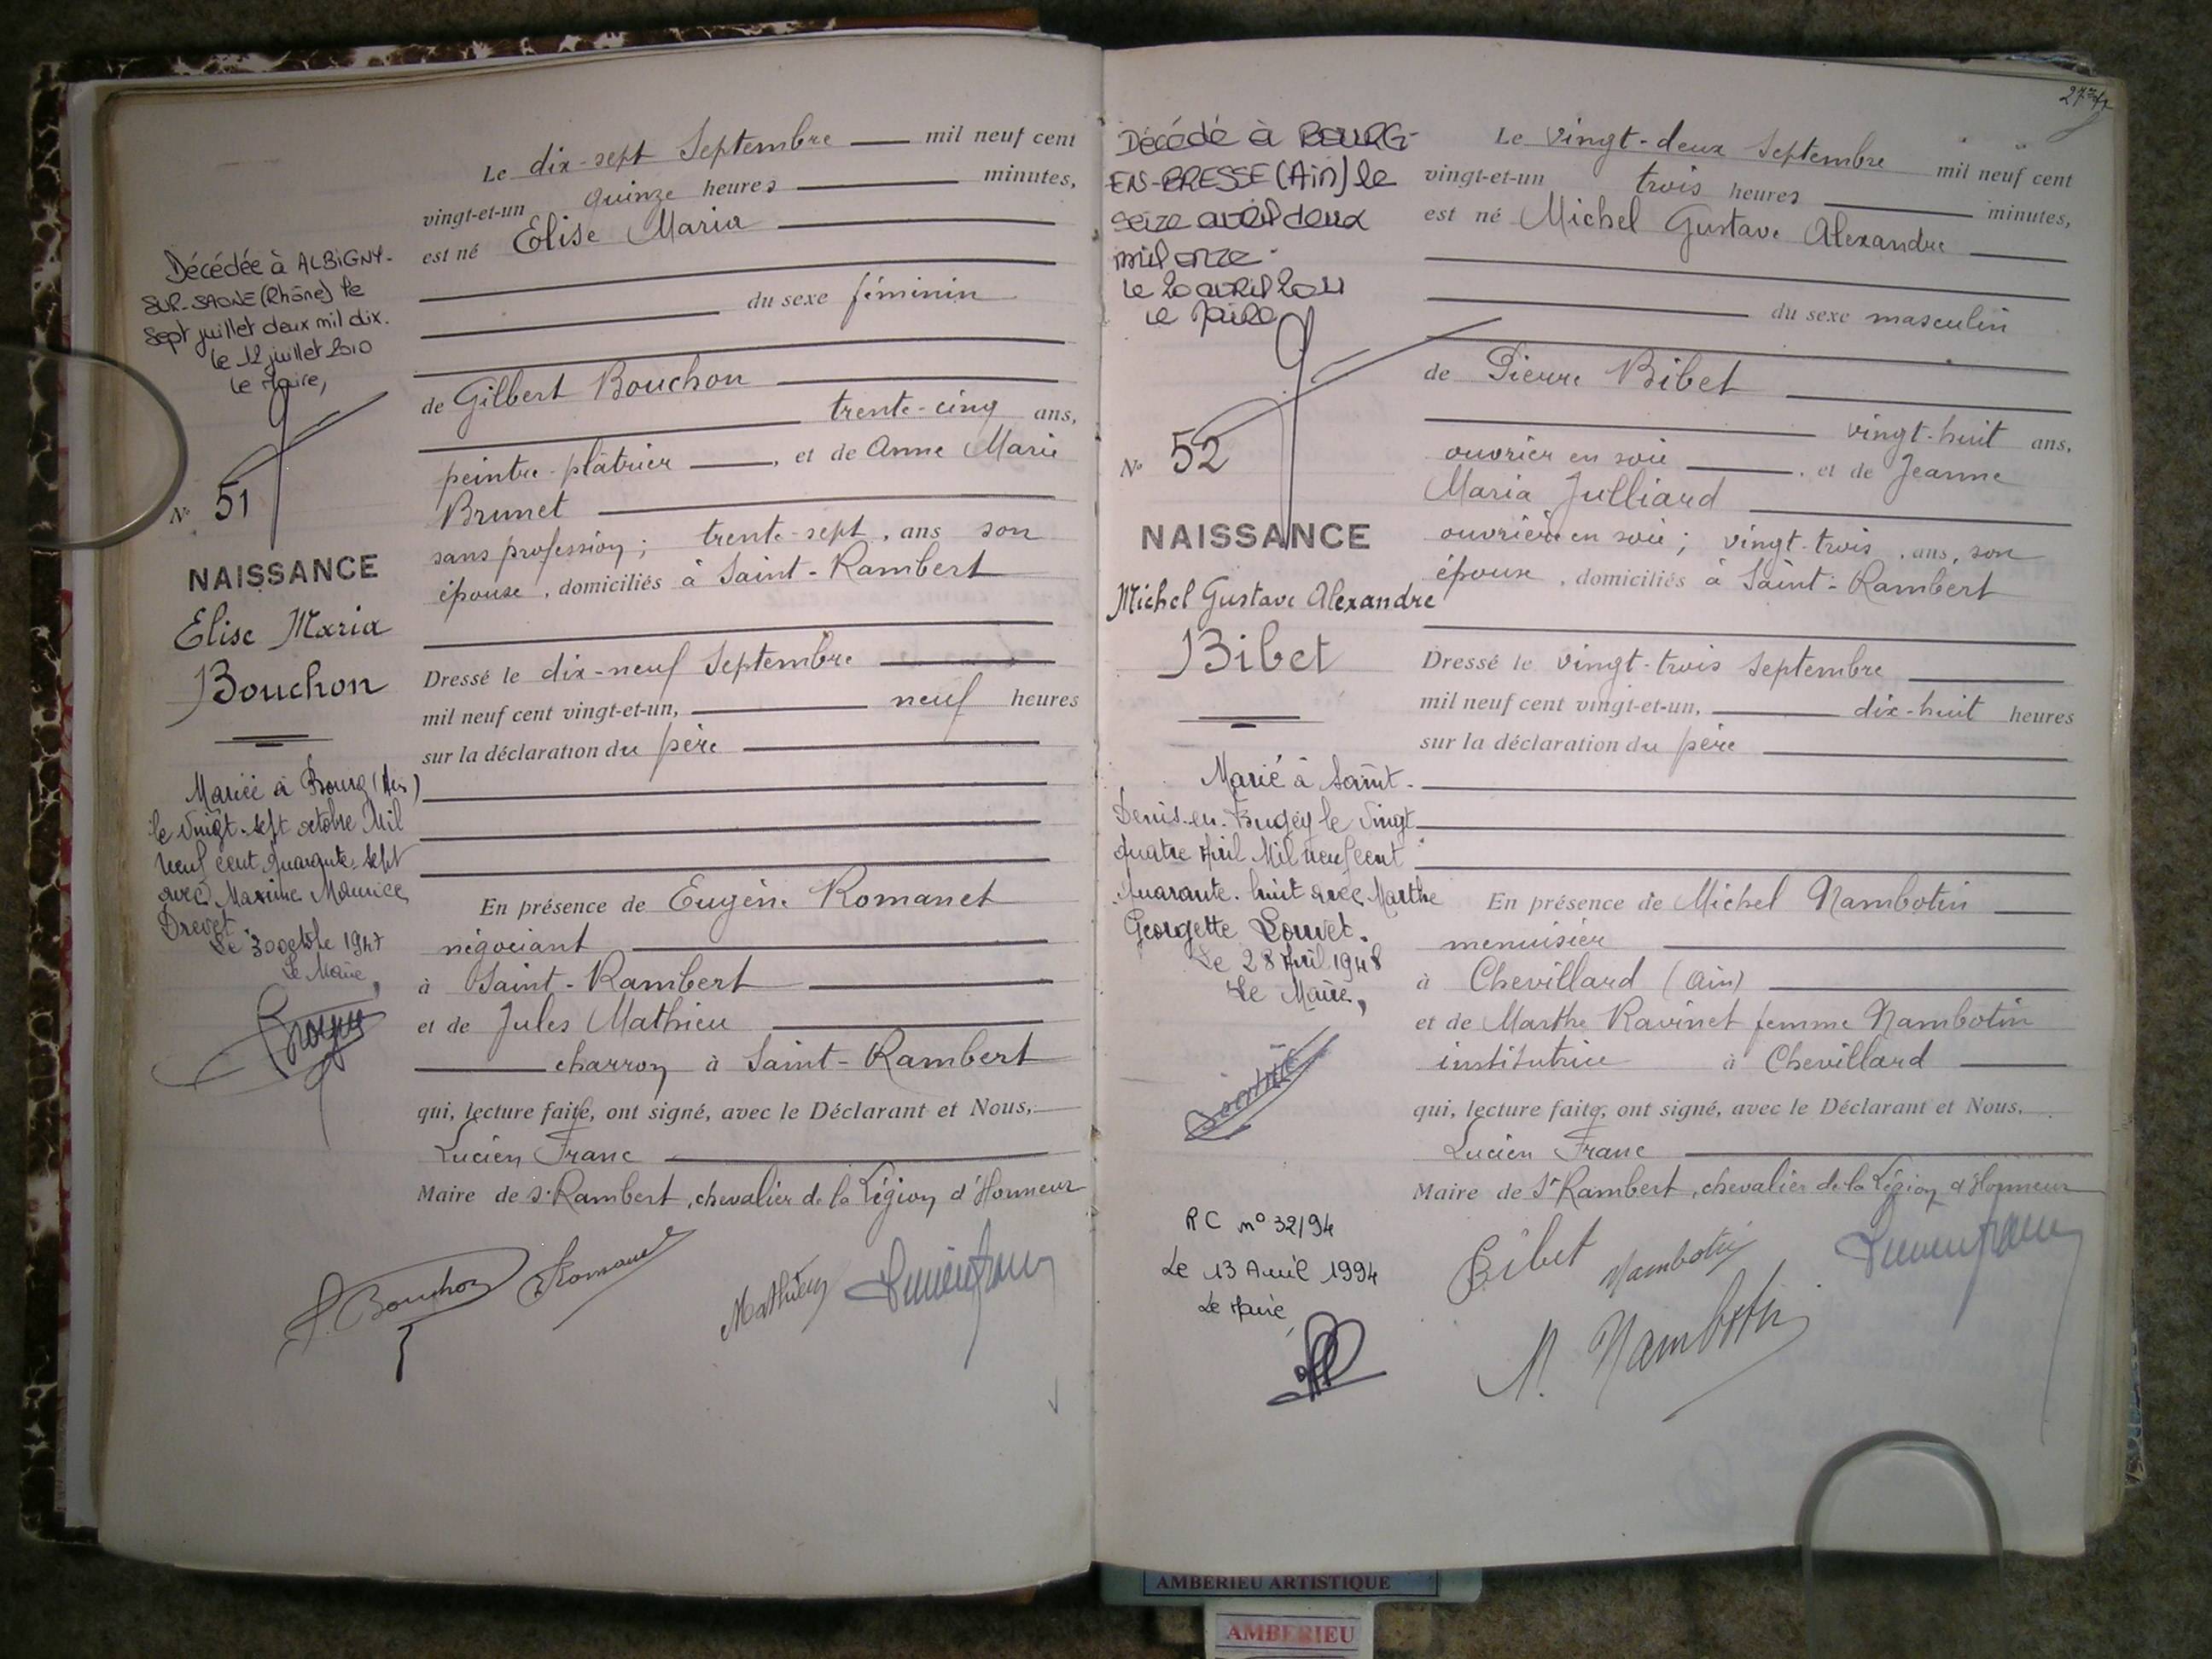 Décédée à ALBIGNY-
SUR-SAONE (Rhône) le
Sept juillet deux mil dix.
le 12 juillet 2010
le Maire,
N° 51
NAISSANCE
Elise Maria
Bouchon
Mariée à Bourg (Ain)
le vingt-sept octobre Mil
neuf cent quarante-sept
avec Maxime Maurice
Drevet.
Le 30 octobre 1947
Le Maire,
Le dix-sept Septembre mil neuf cent
vingt-et-un quinze heures minutes,
est né Elise Maria
du sexe féminin
de Gilbert Bouchon
trente-cinq ans,
peintre-plâtrier, et de Anne Marie
Brunet
sans profession; trente-sept, ans son
épouse, domiciliés à Saint-Rambert
Dressé le dix-neuf Septembre
mil neuf cent vingt-et-un, neuf heures
sur la déclaration du père
En présence de Eugène Romanet
négociant
à Saint-Rambert
et de Jules Mathieu
charron à Saint-Rambert
qui, lecture faite, ont signé, avec le Déclarant et Nous,
Lucien Franc
Maire de St Rambert, chevalier de la Légion d'Honneur
Bouchon Romanet Mathieu Lucien Franc
Décédé à BOURG-
EN-BRESSE (Ain) le
seize avril deux
mil onze.
le 20 avril 2011
le Maire
N° 52
NAISSANCE
Michel Gustave Alexandre
Bibet
Marié à Saint-
Denis-en-Bugey le vingt
quatre Avril Mil neuf cent
quarante-huit avec Marthe
Georgette Louvet.
Le 28 Avril 1948
Le Maire,
RC n° 32/94
Le 13 Avril 1994
Le Maire,
27
Le vingt-deux Septembre mil neuf cent
vingt-et-un trois heures minutes,
est né Michel Gustave Alexandre
du sexe masculin
de Pierre Bibet
vingt-huit ans,
ouvrier en soie, et de Jeanne
Maria Julliard
ouvrière en soie; vingt-trois, ans, son
épouse, domiciliés à Saint-Rambert
Dressé le vingt-trois Septembre
mil neuf cent vingt-et-un, dix-huit heures
sur la déclaration du père
En présence de Michel Nambotin
menuisier
à Chevillard (Ain)
et de Marthe Ravinet femme Nambotin
institutrice à Chevillard
qui, lecture faite, ont signé, avec le Déclarant et Nous,
Lucien Franc
Maire de St Rambert, chevalier de la Légion d'Honneur
Bibet Nambotin Lucien Franc
M. Nambotin
AMBERIEU ARTISTIQUE
AMBERIEU